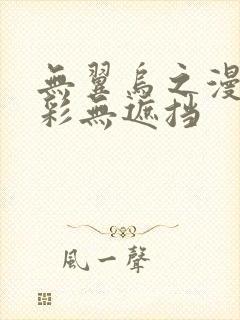 無翼烏之漫
彩無遮挡
風一聲